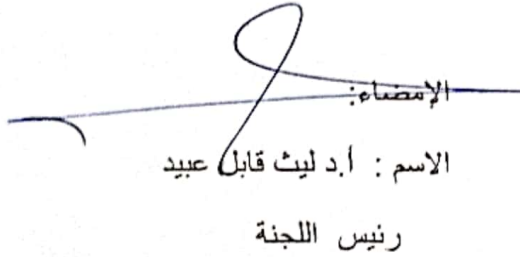 الإمضاء:
الاسم : أ.د ليث قابل عبيد
رئيس اللجنة